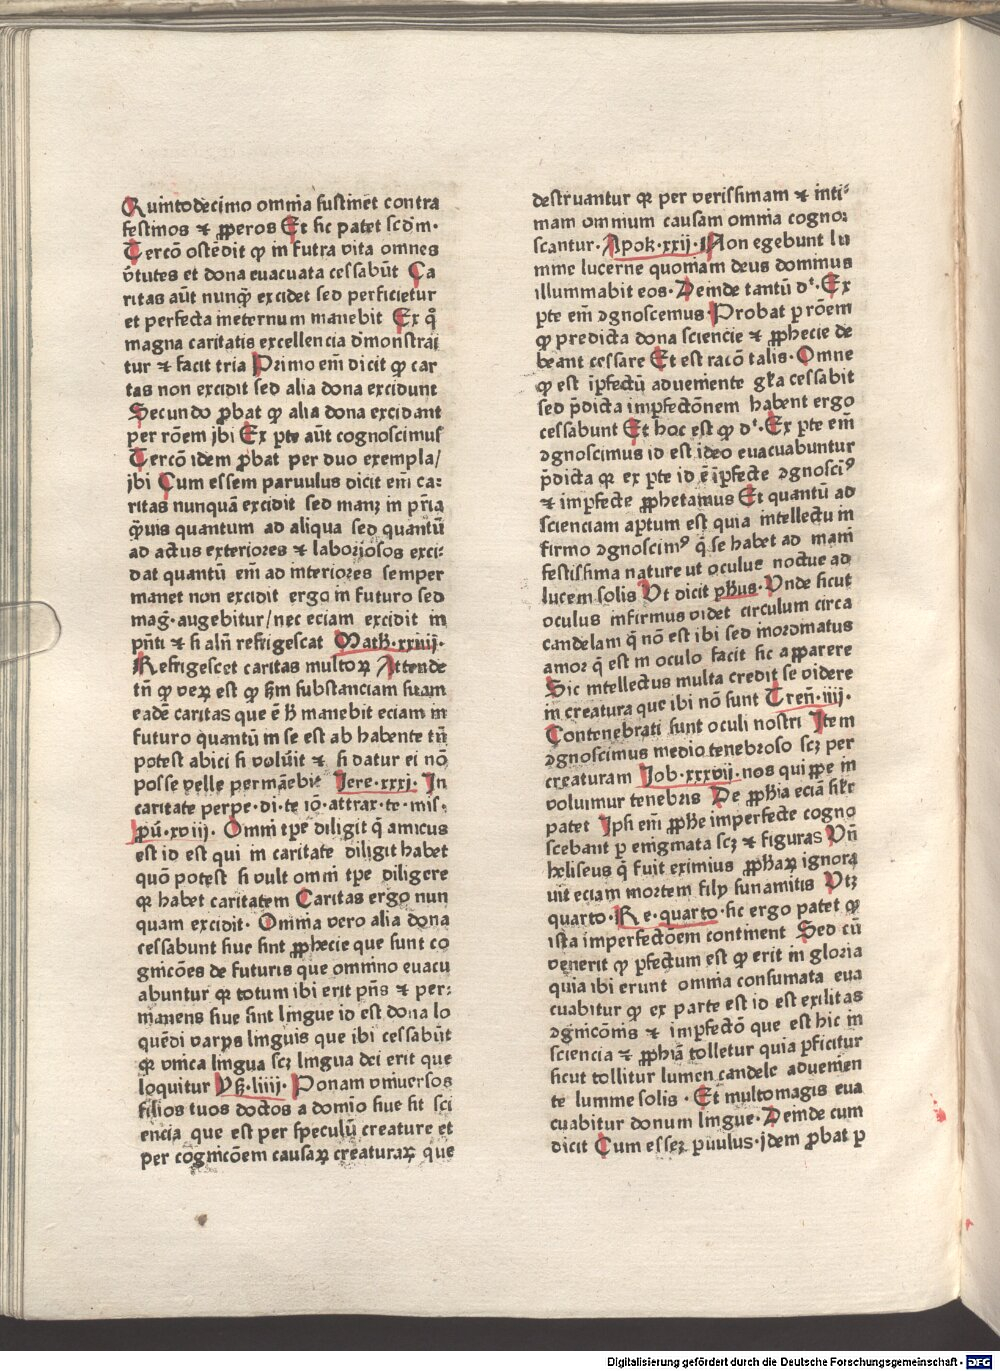 Quintodecimo omnia sustinet contra
festinos ⁊ ꝓperos Et sic patet scd̄m·
Tercō ostēdit ꝙ in futra vita omnes
v̄tutes et dona euacuata cessabūt Ca
ritas aūt nunq̄ excidet sed perficietur
et perfecta ineternum manebit Ex q̄
magna caritatis excellencia dmonstrat
tur ⁊ facit tria Primo em̄ dicit ꝙ cari
tas non excidit sed alia dona excidunt
Secundo ꝓbat ꝙ alia dona excidant
per rōem jbi Ex pte aūt cognoscimus
Tercō idem ꝓbat per duo exempla/
jbi Cum essem paruulus dicit em̄ ca:
ritas nunquā excidit sed manꝫ in p̄ria
q̄uis quantum ad aliqua sed quantū
ad actus exteriores ⁊ laborjosos exci:
dat quantū em̄ ad interiores semper
manet non excidit ergo in futuro sed
maḡ·augebitur/nec eciam excidit in
pn̄ti ⁊ si aln̄ refrigescat Math·xxiiij·
Refrigescet caritas multoꝝ Attende
tn̄ ꝙ veꝝ est ꝙ ẜm substanciam suam
eadē caritas que ē h̄ manebit eciam in
futuro quantū in se est ab habente tn̄
potest abici si volūit ⁊ si datur ei nō
posse velle permāebit Jere·xxxj· In
caritate perpe·di·te iō·attrax·te·mis·
ꝓū·xviij· Omni tp̄e diligit q̄ amicus
est id est qui in caritate diligit habet
quō potest si vult omni tp̄e diligere
qꝛ habet caritatem Caritas ergo nun
quam excidit· Omnia vero alia dona
cessabunt siue sint ꝓphecie que sunt co
gnicōes de futuris que omnino euacu
abuntur qꝛ totum ibi erit pn̄s ⁊ per:
manens siue sint lingue id est dona lo
quēdi varꝑs linguis que ibi cessabūt
qꝛ vnica lingua scꝫ lingua dei erit que
loquitur Ps·liiij· Ponam vniuersos
filios tuos doctos a domīo siue sit sci
encia que est per speculū creature et
per cognicōem causaꝝ creaturaꝝ que
destruantur qꝛ per verissimam ⁊ inti⸗
mam omnium causam omnia cogno:
scantur·Apok·xxij·Non egebunt lu
mine lucerne quoniam deus dominus
illuminabit eos·Deinde tantū dt·Ex
pte em̄ ↄgnoscemus·Probat p rōem
ꝙ predicta dona sciencie ⁊ ꝓphecie de
beant cessare Et est racō talis·Omne
ꝙ est īpfectū adueniente gl̄a cessabit
sed p̄dicta impfectōnem habent ergo
cessabunt Et hoc est ꝙ dt·Ex pte em̄
ↄgnoscimus id est ideo euacuabuntur
p̄dicta qꝛ ex pte id ē īpfecte ↄgnosciꝰ
⁊ impfecte ꝓphetamus Et quantū ad
scienciam aptum est quia intellectu in
firmo ↄgnoscimꝰ q̄ se habet ad mani
festissima nature ut oculus noctue ad
lucem solis Vt dicit ph̄us·Vnde sicut
oculus infirmus videt circulum circa
candelam q̄ nō est ibi sed inordinatus
amor q̄ est in oculo facit sic apparere
Sic intellectus multa credit se videre
in creatura que ibi nō sunt Tren̄·iiij·
Contenebrati sunt oculi nostri Item
ↄgnoscimus medio tenebroso scꝫ per
creaturam Job·xxxvij·nos quippe in
voluimur tenebris De ꝓphīa eciā sil̄r
patet Ipsi em̄ ꝓph̄e imperfecte cogno
scebant p enigmata scꝫ ⁊ figuras Vn̄
heliseus q̄ fuit eximius ꝓph̄aꝝ ignora
uit eciam mortem filij sunamitis Vtꝫ
quarto·Re·quarto·sic ergo patet ꝙ
ista imperfectōem continent Sed cū
venerit ꝙ pfectum est ꝙ erit in gloria
quia ibi erunt omnia consumata eua
cuabitur ꝙ ex parte est id est exilitas
ↄgnicōnis ⁊ impfectō que est hic in
sciencia ⁊ ꝓphiā tolletur quia pficitur
sicut tollitur lumen candele aduenien
te lumine solis·Et multomagis eua
cuabitur donum lingue·Deinde cum
dicit Cum esseꝫ puulus·jdem ꝓbat p
Digitalisierung gefördert durch die Deutsche Forschungsgemeinschaft - DFG